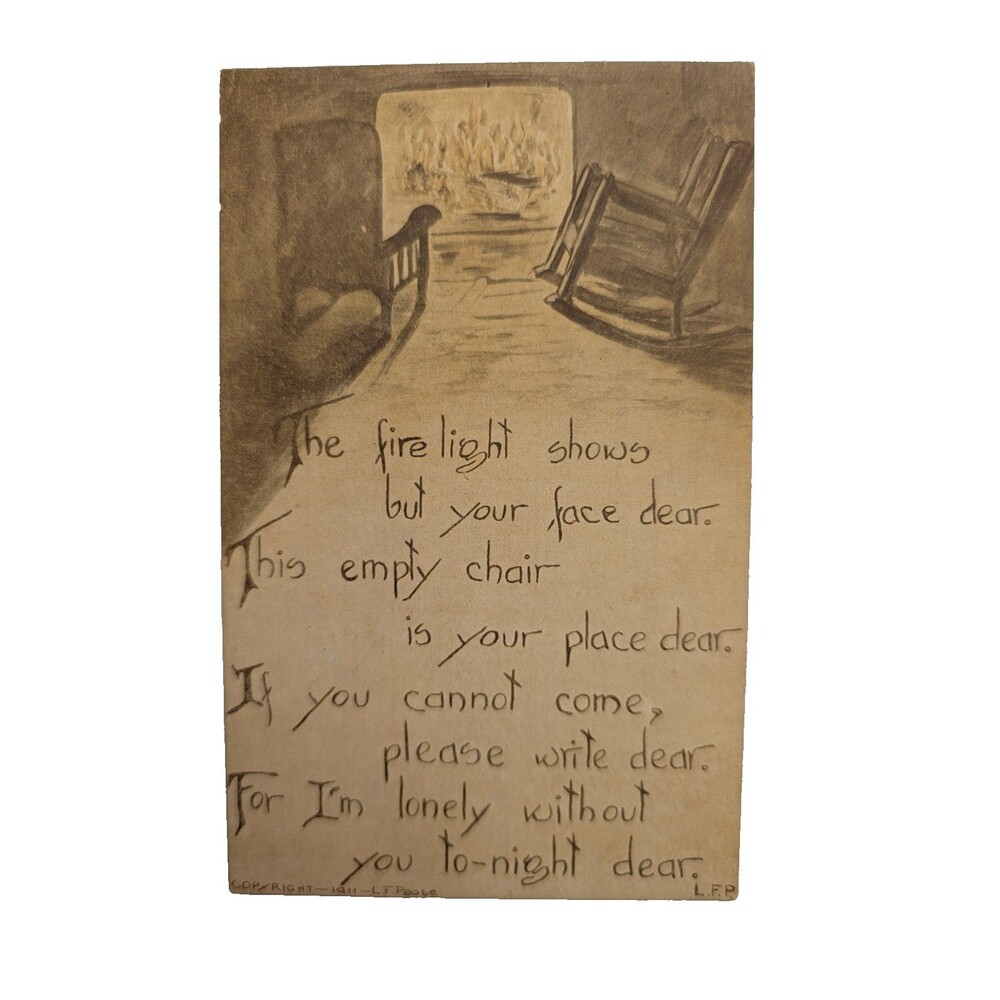 The fire light shows
but your face dear.
This empty chair
is your place dear.
If you cannot come,
please write dear.
For I'm lonely without
you to-night dear.
COPYRIGHT—1911—L F Pease
L.F.P.